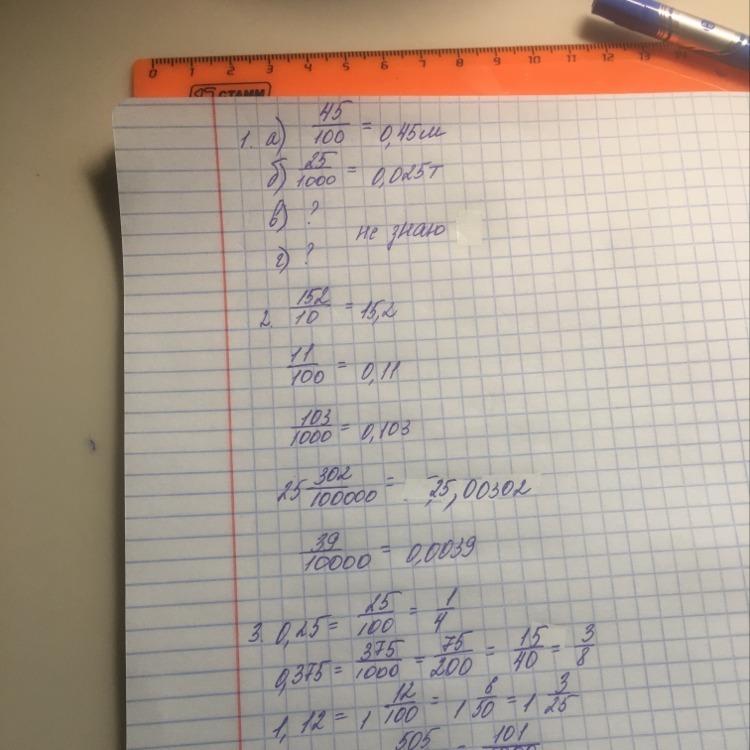 0 1 2 3 4 5 6 7 8 9 10 11 12 13
СТАММ
1. а) 45/100 = 0,45м
б) 25/1000 = 0,025т
в) ?
не знаю
г) ?
2. 152/10 = 15,2
11/100 = 0,11
103/1000 = 0,103
25 302/100000 = 25,00302
39/10000 = 0,0039
3. 0,25 = 25/100 = 1/4
0,375 = 375/1000 = 75/200 = 15/40 = 3/8
1,12 = 1 12/100 = 1 6/50 = 1 3/25
505 = 101